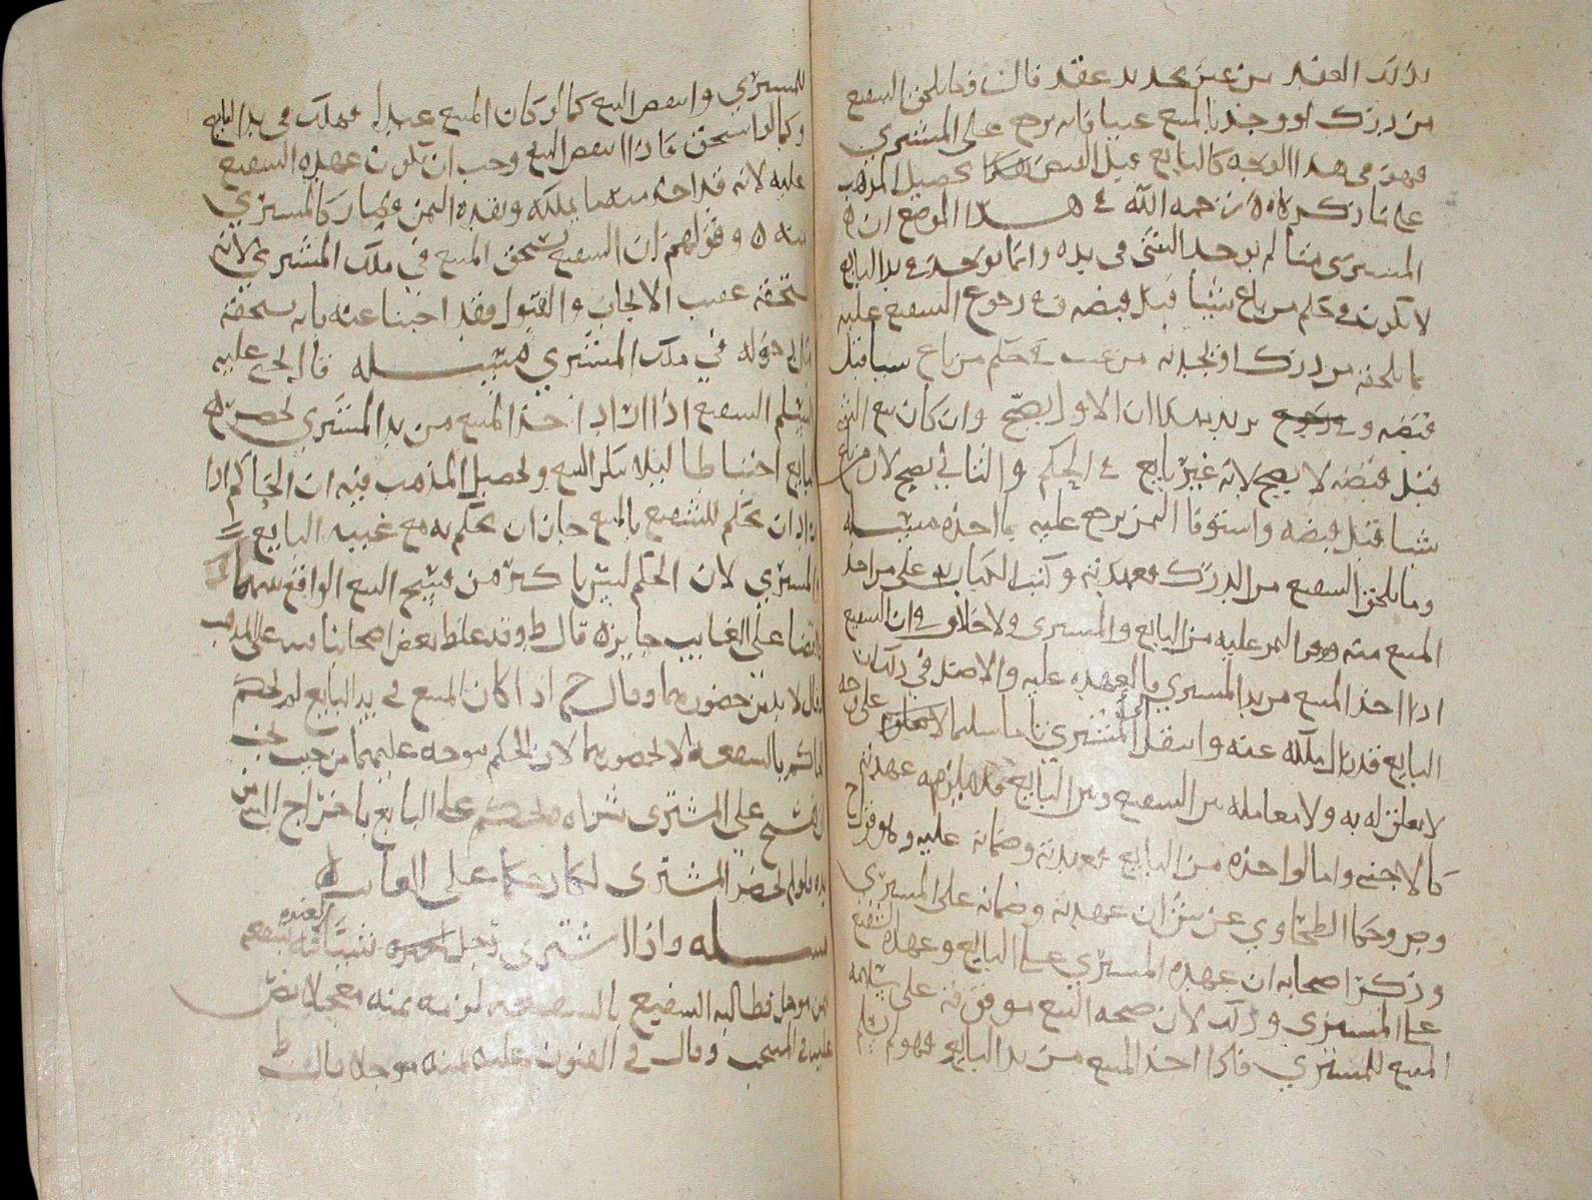 بذلك العقد من غير تجديد عقد قالت وما يلحق الشفيع
من درك او وجد بالمبيع عيبا فانه يرجع على المشتري
فهو في هذا الوجه كالبايع قبل القبض هكذا تحصيل المذهب
على ما ذكره رحمه الله في هذا الموضع ان
المشتري متا لم يوجد الشي في يده وانما يوجد في يد البايع
لا تكون في حكم من باع شيئا قبل قبضه في رجوع الشفيع عليه
بما يلحقه من درك او يجد به من عيب في حكم من باع شيا قبل
قبضه و يريد بهذا ان الاول يصح وان كان بيع الشي
قبل قبضه لا يصح لانه غير بايع في الحكم والثاني يصح لان من باع
شيا قبل قبضه واستوفا الثمن يرجع عليه بما اخذه مسله
وما يلحق الشفيع من الدرك فعهدته وكتب الكتاب به على من اخذ
المبيع منه ووفر الثمن عليه من البايع والمشتري ولا خلاف في ان الشفيع
اذا اخذ المبيع من يد المشتري فالعهده عليه والاصل في ذلك ان
البايع قد زال ملكه عنه وانتقل الى المشتري تاما سليما لا تعلق على وجه
لا تعلق له به ولا معامله بين الشفيع وبين البايع فلا يلزمه عهدته
كالاجنبي واما لو اخذه من البايع فعهدته وضمانه عليه وهو قول ح
وص وحكا الطحاوي عن ش ان عهدته وضمانه على المشتري
وذكر اصحابه ان عهده المشتري على البايع وعهده الشفيع
على المشتري وذلك لان صحه البيع موقوفه على سلامه
المبيع للمشتري فاذا اخذ المبيع من يد البايع فهو لم يسلم
للمشتري وانتقص البيع كما لو كان المبيع عبدا فهلك في يد البايع
وكما لو استحق فاذا انتقص البيع وجب ان تكون عهده الشفيع
عليه لانه قد اخذ منه ما يملكه ونقده الثمن فصار كالمشتري
منه وقولهم ان الشفيع يستحق المبيع في ملك المشتري لانه
يستحقه عقيب الايجاب والقبول فقد اجبنا عنه بانه يستحقه
قبل دخوله في ملك المشتري مسله قال يحيى عليه
السلم الشفيع اذا اراد اخذ المبيع من يد المشتري احضر له
البايع احتياطا ليلا ينكر البيع وتحصيل المذهب فيه ان الحاكم اذا
اراد ان يحكم للشفيع بالمبيع جاز ان يحكم به مع غيبه البايع
والمشتري لان الحكم ليس باكثر من فسخ البيع الواقع بينهما
والقضا على الغايب جايزه قال ط وقد غلط بعض اصحابنا فيه على المذهب
فقال لا بد من حضورهما وقال ح اذا كان المبيع في يد البايع لم يحكم
الحاكم بالشفعه الا بحضورهما لان الحكم يتوجه عليهما من حيث يجب
الفسخ على المشتري شراه ويحكم على البايع باخراج الشي من
يده فلو لم يحضر المشتري لكان حكما على الغايب
مسله واذا اشترى رجل شيئا فيه شفعه
بثمن موجل فطالبه الشفيع بالشفعه لزمه ثمنه معجلا نص
عليه في المنتخب وقال في الفنون عليه ثمنه موجلا قال ط